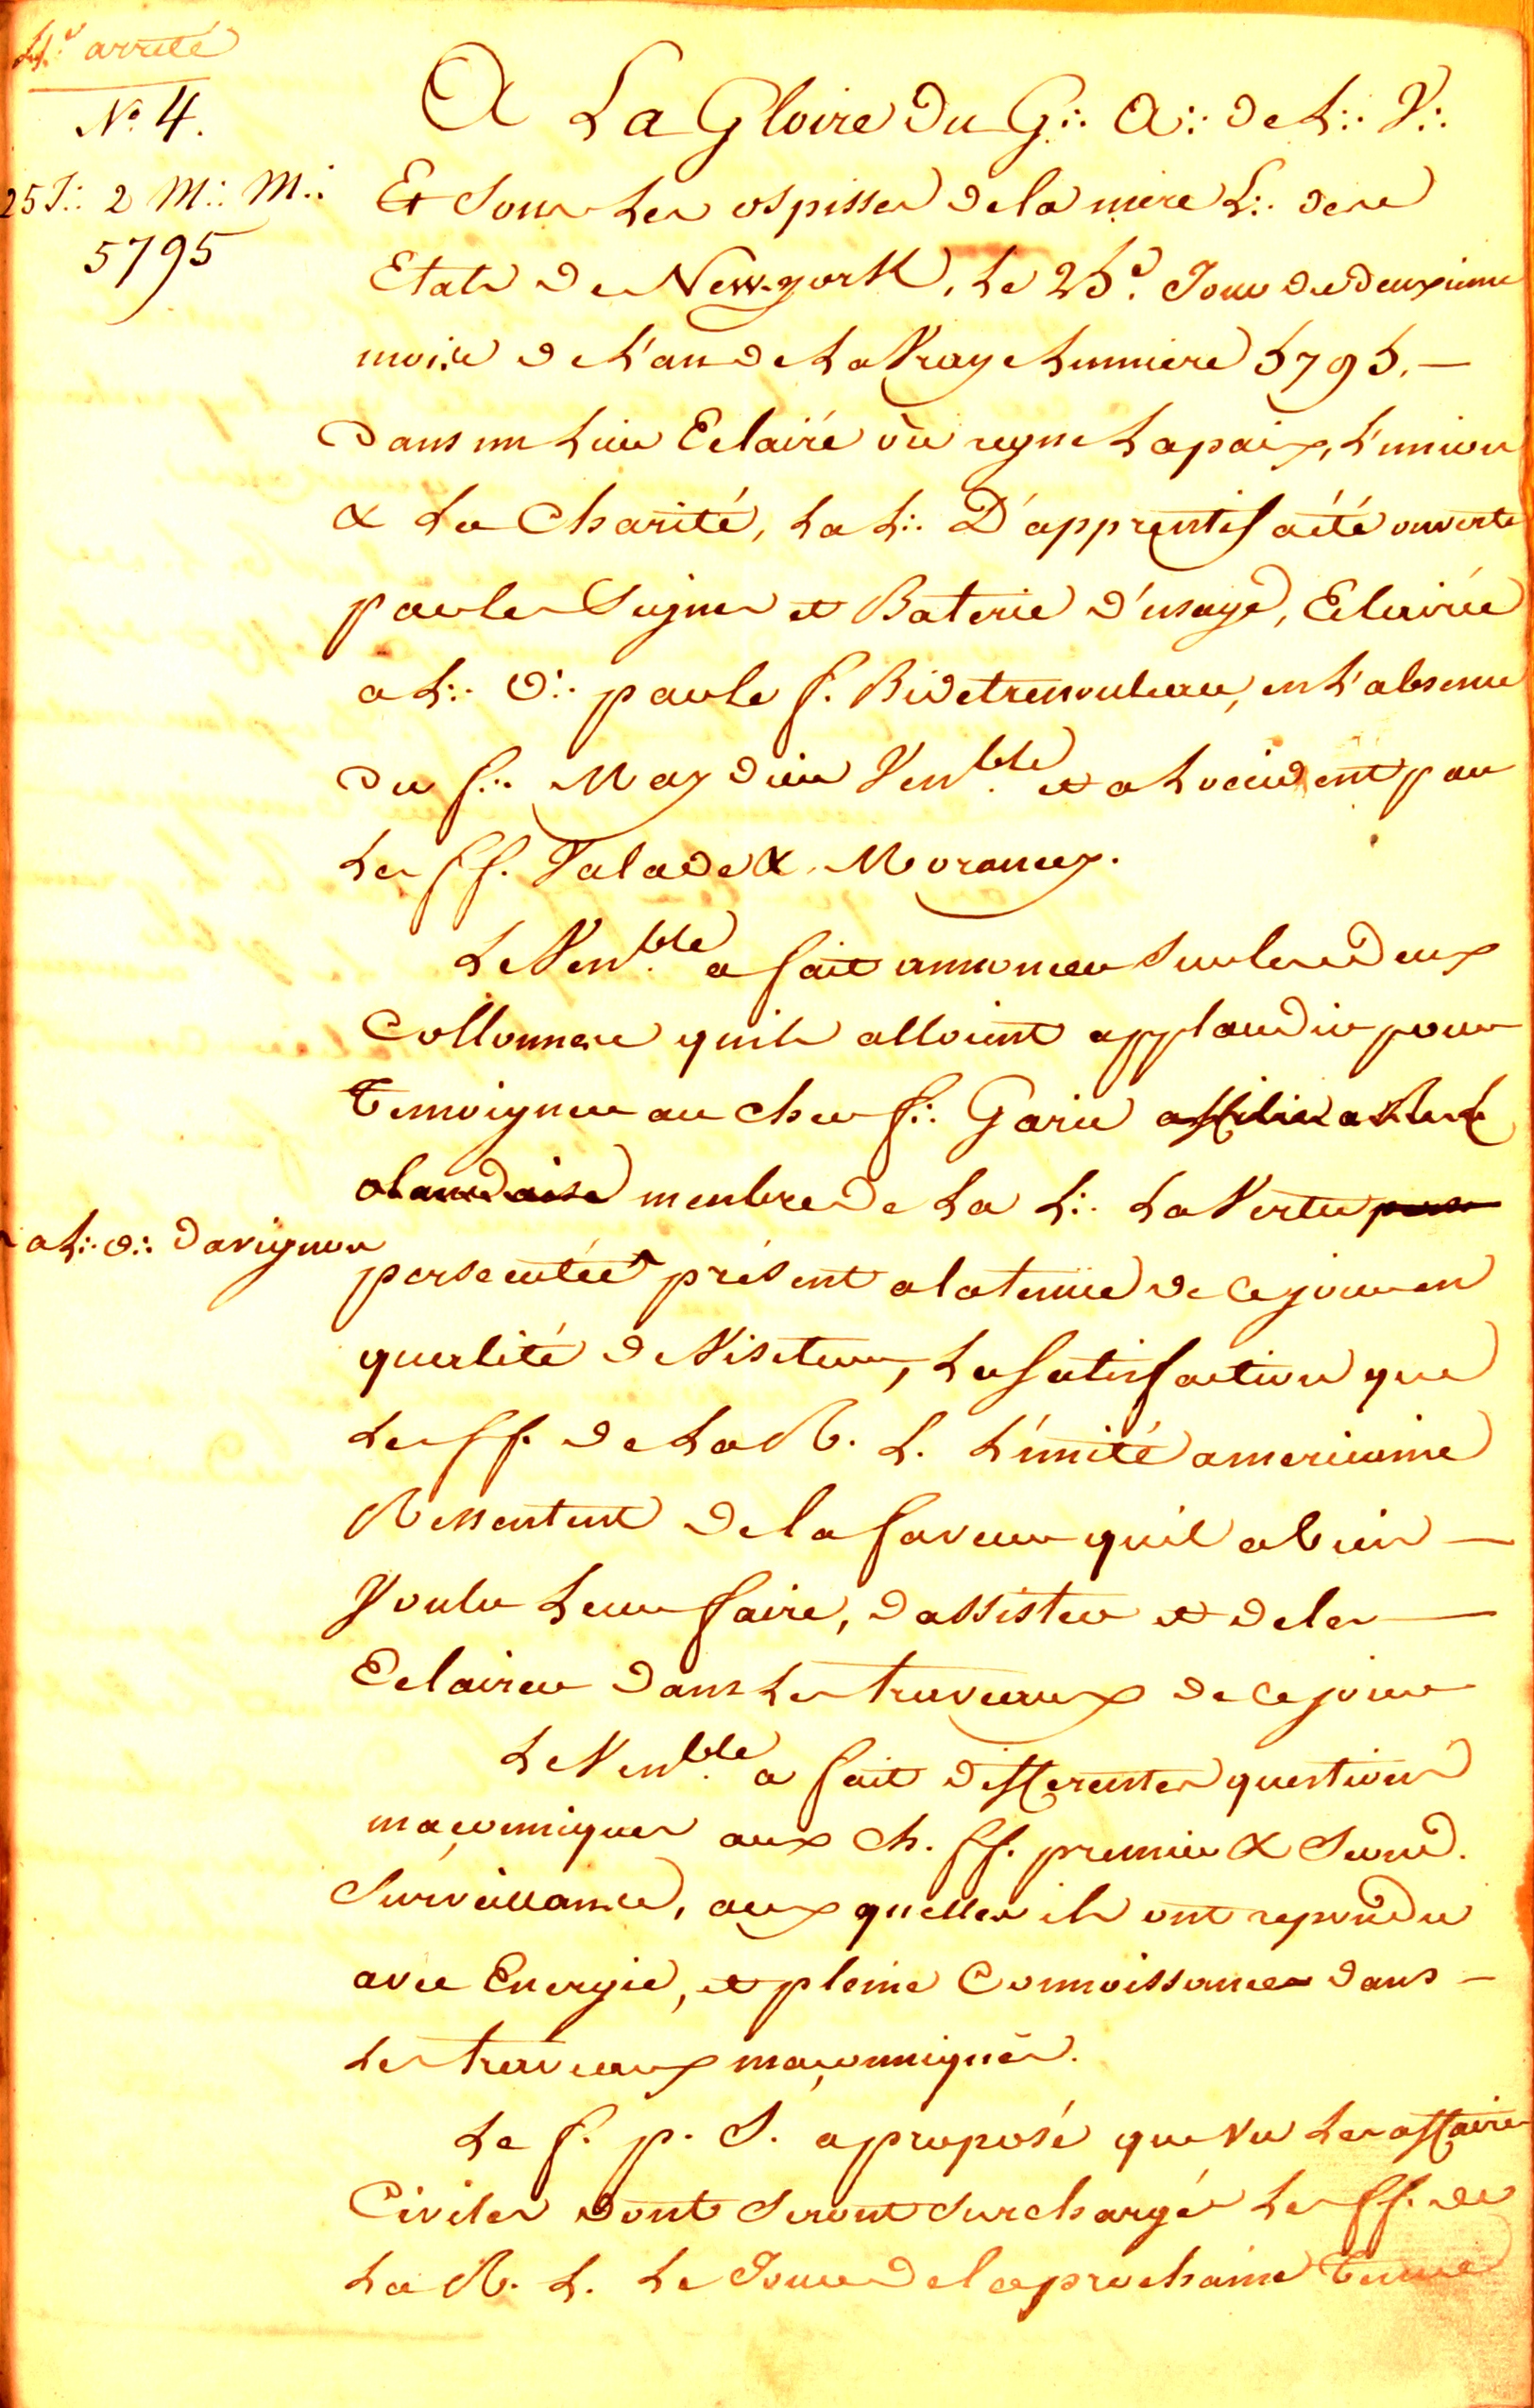 4e arrêté
No. 4.
25 J∴ 2 M∴ M∴
5795
A La Gloire Du G∴ A∴ de L∴ V∴
Et Sous Les ospisses de la mere L∴ de ce
Etats De New-york, Le 25e. Jour du deuxieme
mois de L'an de La Vraye Lumiere 5795. —
Dans un Lieu Eclairé où regne La paix, L'union
& La Charité, La L∴ D'apprentif a été ouverte
par les Signes et Baterie d'usage, Eclairée
a L∴ O∴ par le f. Bidetrenouleau, en L'absence
du f∴ Maydieu Venble. et a Loccident par
Les ff. Valade & Morancy.
Le Venble. a fait annoncer Sur les deux
Collonnes quils alloient applaudir pour
temoigner au cher f∴ Garie affilié a
olandaise membre de La L∴ La Vertu pers
a L∴ O∴ Davignon
persecutée présent a la tenue de ce jour en
qualité de Visiteur, La Satisfaction que
Les ff. de La R. L. L'unité americaine
Ressentent de la faveur quil a bien —
Voulu Leur faire, d'assister et de les —
Eclairer dans Les travaux de ce jour
Le Venble. a fait differentes questions
maçonniques aux Ch. ff. premier & Second.
Surveillance, aux quelles ils ont repondu
avec Energie, et pleine Connoissances dans —
Les travaux maçonniques.
Le f. p. S. a proposé que Vu Les affaires
Civiles dont Seront Surchargés Les ff. de
La R. L. Le Jour de la prochaine tenue